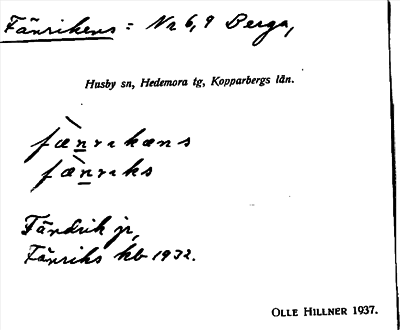 Fänrikens = Nr 6, 9 Berga,
Husby sn, Hedemora tg, Kopparbergs län.
fæ̀nrikæns
fæ̀nriks
Fändrik jr,
Fänriks kb 1932.
OLLE HILLNER 1937.